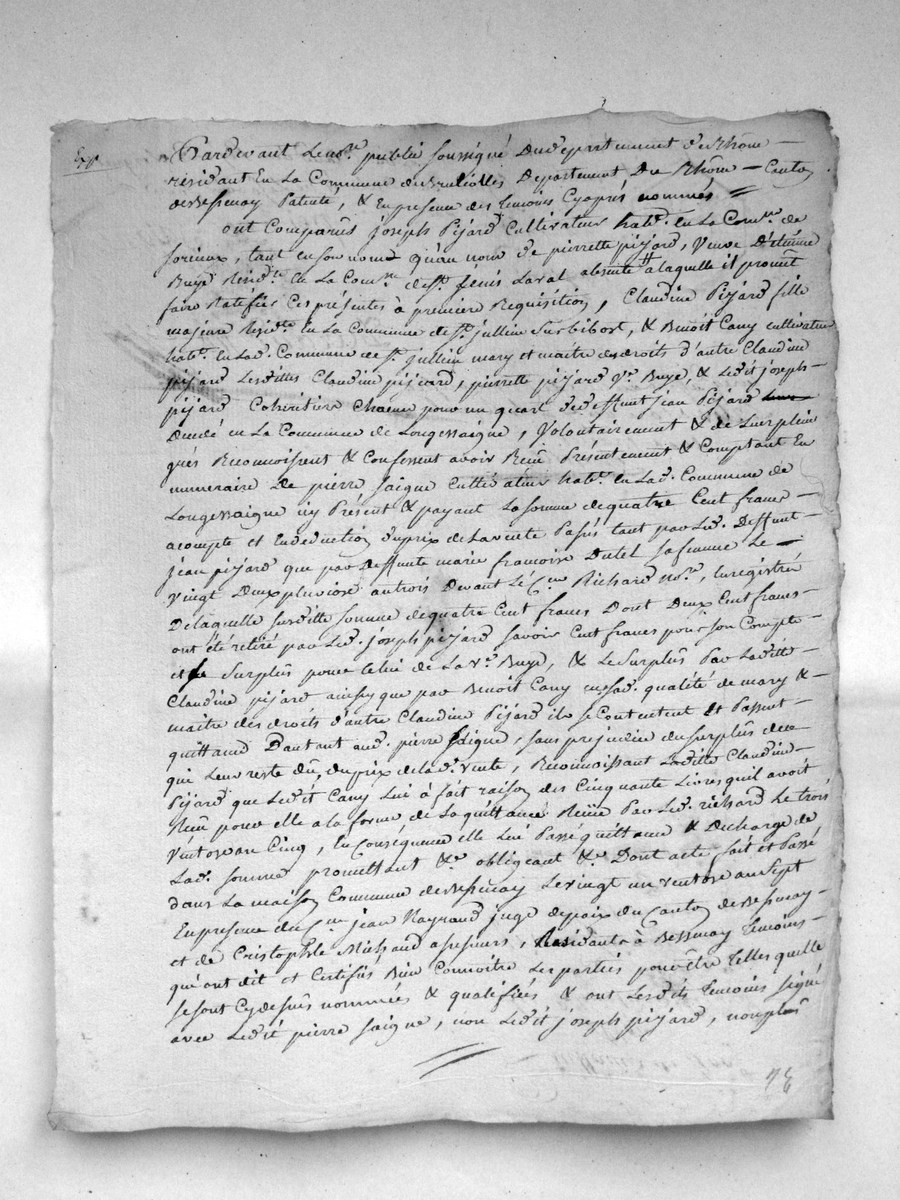 Pardevant Le no.re publié soussigné Du département du Rhône —
résidant En La Commune de Brulioles Département Du Rhône — Canton
de Bessenay Patenté, & En presence des Temoins Cy après nommés
ont Comparus joseph Pijard Cultivateur hab.t En La Com.ne de
tant en son nom qu'au nom de pierrette pijard, Veuve D'etienne
Buye Resid.te En La Com.ne de St. Genis Laval absente # a laquelle il promêt
faire Ratefier Ces présentes à première Requisition, Claudine Pijard fille
majeure Resid.te En La Commune de St. jullien Sur bibost, & Benoît Cany cultivateur
hab.t En Lad. Commune de St. jullien mary et maitre des droits d'autre Claudine
pijard Lesdittes Claudine pijard, pierrette pijard V.e Buye, & Ledit joseph
pijard Cohéritier Chacun pour un quart de deffunt jean Pijard
Décédé en La Commune de Longessaigne, Volontairement & de Leur plein
grés Reconnoissent & Confessent avoir Reçû Présentement & Comptant En
numeraire De pierre Saigne Cultivateur hab.t En Lad. Commune de
Longessaigne icy Présent & payant La somme de quatre Cent francs —
acompte et En deduction du prix de La vente Passée tant par Led. Deffunt
jean pijard que par deffunte marie francoise Dutel Sa femme Le —
Vingt Deux pluviose an trois Devant Le C.en Richard no.re, Enregistré
De laquelle susditte somme de quatre Cent francs Dont Deux Cent francs —
ont été retiré par Led. joseph pijard savoir Cent francs pour son Compte
et le Surplus pour Celui de La V.e Buye, & Le Surplus Par Laditte
Claudine pijard ainsy que par Benoît Cany en sad. qualité de mary &
maitre des droits d'autre Claudine Pijard ils se Contentent Et Passent
quittance D'autant aud. pierre Saigne, sans prejudice du Surplus de ce
qui Leur reste dû du prix de lad. Vente, Reconnoissant Laditte Claudine
Pijard que Ledit Cany Lui à fait raison des Cinquante Livres qu'il avoit
Reçû pour elle a la forme de La quittance Reçüe Par Led. richard Le trois
Ventose an Cinq, En Conséquence elle Lui Passe quittance & Decharge de
Lad. somme promettant &.e obligeant &.e Dont acte fait et Passé
dans La maison Commune de Bessenay Le vingt un ventose an Sept
En presence du C.en jean Raynaud juge de paix du Canton de Bessenay
et de Cristophle Michaud assesseurs, Residants à Bessenay Temoins
qui ont dit et Certifiés Bien Connoitre Les parties pour être telles quelle
se sont Cy dessus nommées & qualifiées & ont Lesdits Temoins signé
avec Ledit pierre Saigne, non Ledit joseph pijard, non plus